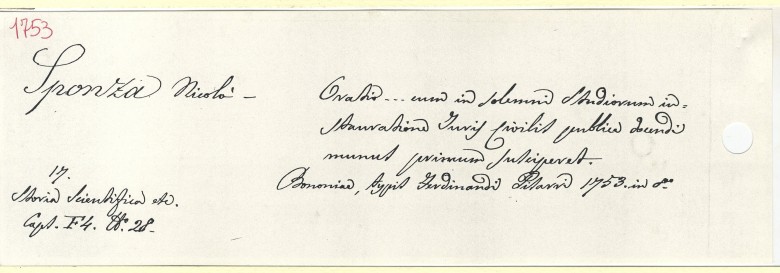 1753
Sponza Nicolò -
Oratio ... cum in solemni Studiorum in=
stauratione Juris Civilis publice docendi
munus primum susciperet.
Bononiae, typis Ferdinandi Pisarri 1753. in 8.o
17.
Storia Scientifica etc.
Caps. F4. N.o 28-